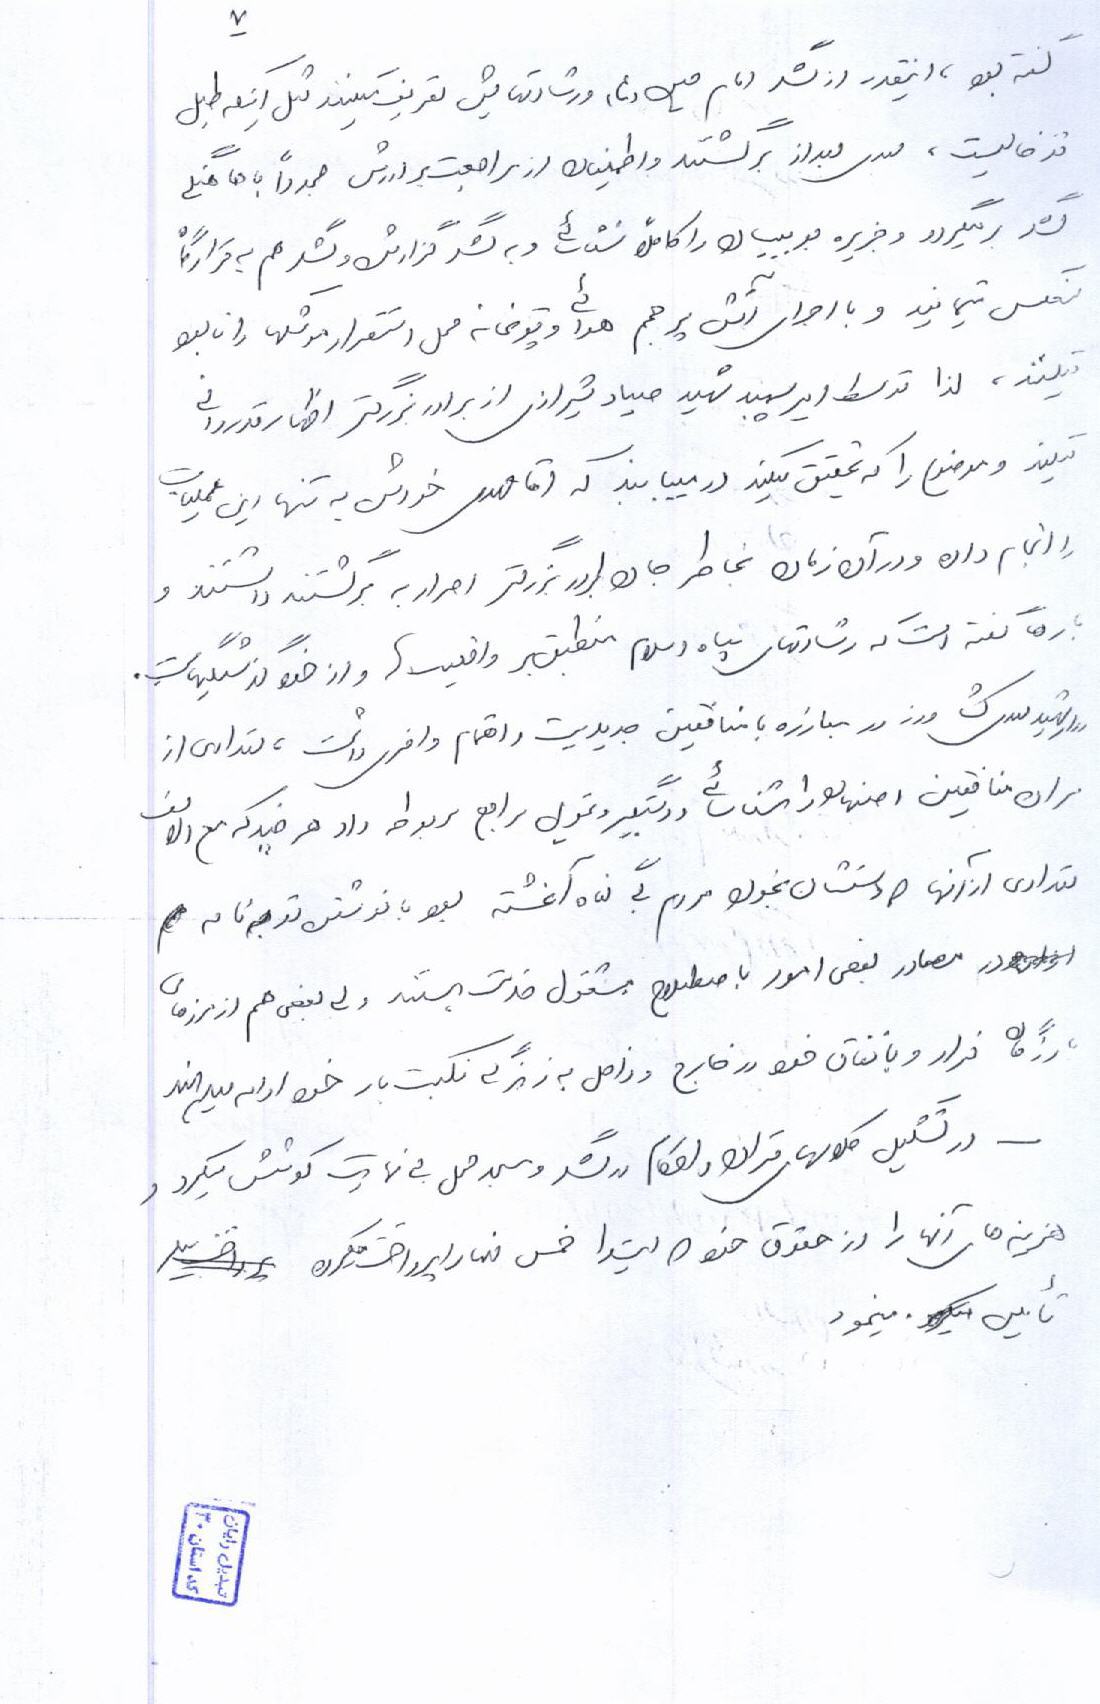 ۷
گفته بود، اینقدر از لشگر امام حسین (ع) و رشادتهایش تعریف میکنند مثل اینکه طبل
تو خالیست، مهدی بعد از برگشتند و اطمینان از مراجعت برادرش مجدداً با هماهنگی
لشگر برمیگردد و جزیره بوبیان را کاملاً شناسائی و به لشگر گزارش و لشگر هم به قرارگاه
منعکس مینمایند و با اجرای آتش پر حجم هوائی و توپخانه محل استقرار موشکها را نابود
میکنند، لذا توسط امیر سپهبد شهید صیاد شیرازی از برادر بزرگتر اظهار قدردانی
میکنند و موضوع را که تحقیق میکنند در مییابند که آقا مهدی خودش به تنها این عملیات
را انجام داده و در آن زمان بخاطر جان برادر بزرگتر اصرار به برگشتند داشتند و
بارها گفته است که رشادتهای سپاه اسلام منطبق بر واقعیت ها و از خود گذشتگیهاست.
شهید مهدی در مبارزه با منافقین جدیدیت و اهتمام وافری داشت، تعدادی از
سران منافقین اصفهان را شناسائی و دستگیر و تحویل مراجع مربوطه داد هر چند که مع الاسف
تعدادی از آنها که دستشان بخون مردم بی گناه آغشته بود با نوشتن توبه نامه
در مصادر بعضی امور با صطلاح مشغول خدمت هستند ولی بعضی هم از مرزهای
بازرگان فرار و با نفاق خود در خارج و داخل به زندگی نکبت بار خود ادامه میدهند
— در تشکیل کلاسهای قرآن و احکام در لشگر و مسجد محل بی نهایت کوشش میکرد و
هزینه های آنها را از حقوق خود که ابتدا خمس آنها را پرداخت میکرد
تأمین مینمود.
تبدیل رایان
کد استان ۳۰